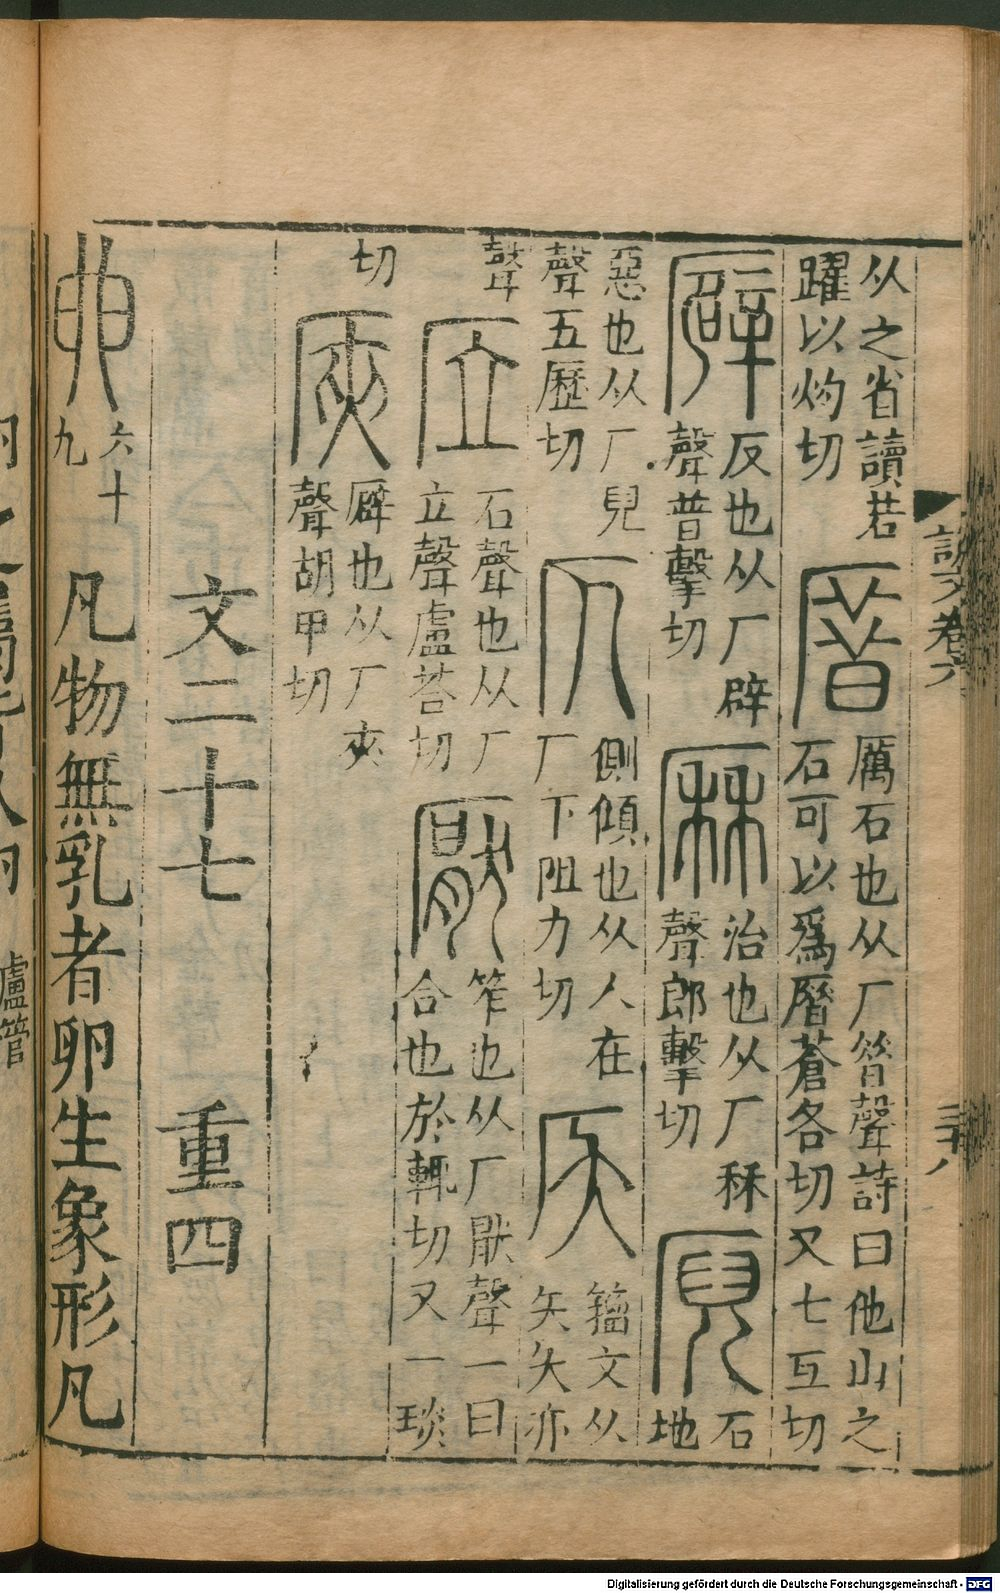 說文卷六
三十八
从之省讀若
躍以灼切
厝
厲石也从厂㫺聲詩曰他山之
石可以爲厝蒼各切又七互切
𠪮
反也从厂辟
聲普擊切
厤
治也从厂秝
聲郎擊切
石
地
惡也从厂兒
聲五歷切
仄
側傾也从人在
厂下阻力切
𠨷
籀文从
夨夨亦
聲
𠩘
石聲也从厂
立聲盧荅切
厭
笮也从厂猒聲一曰
合也於輒切又一琰
切
㕍
㕢也从厂夾
聲胡甲切
文二十七 重四
卵
六十
九
凡物無乳者卵生象形凡
盧管